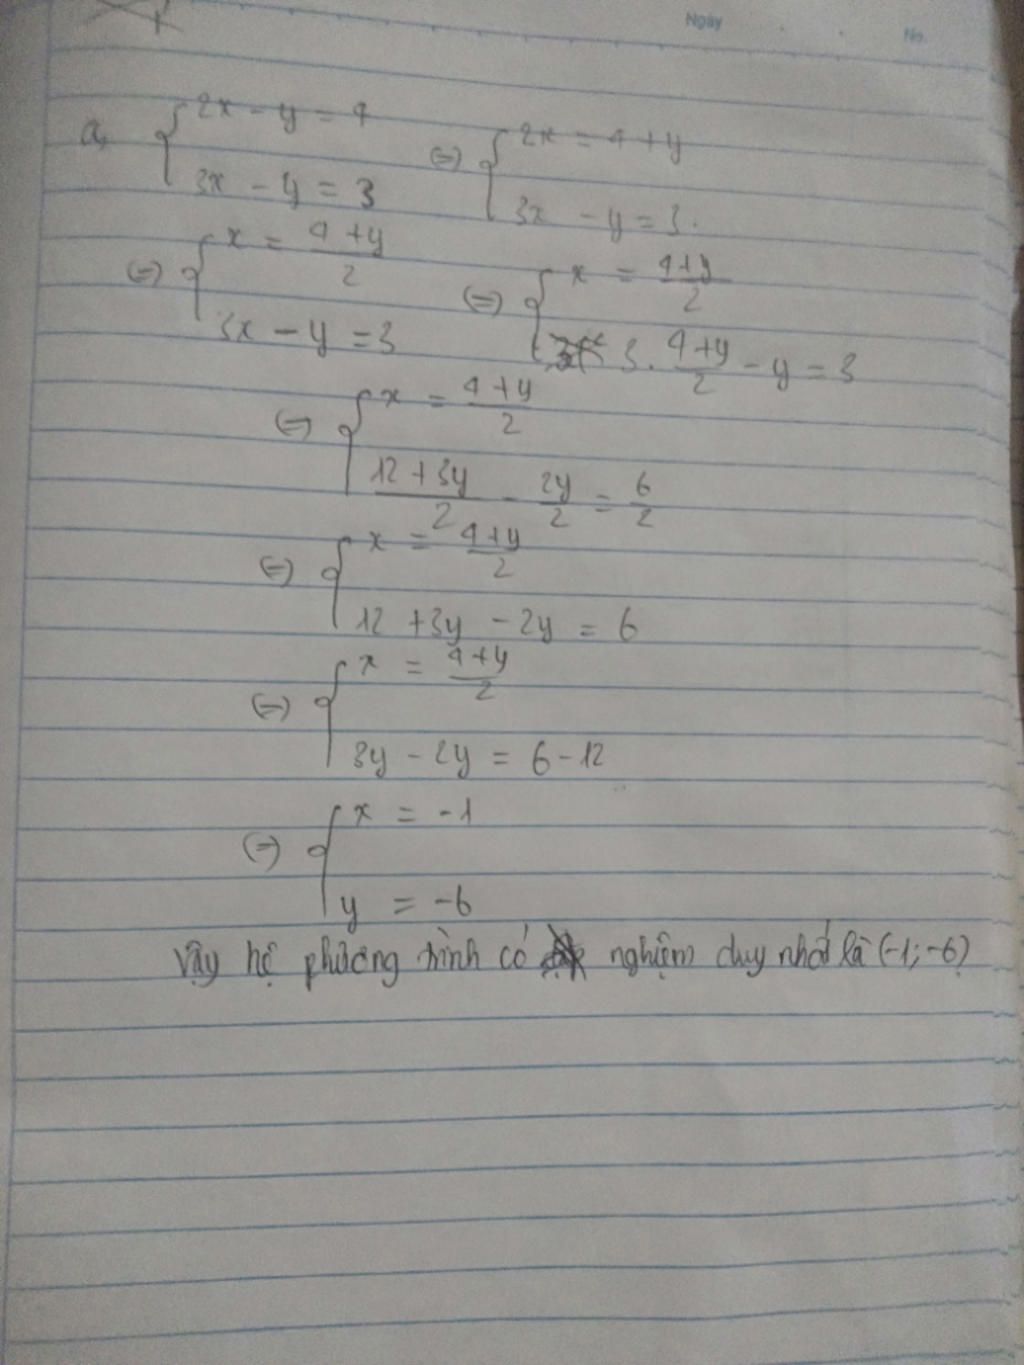 Ngày
No.
a, { 2x - y = 4
3x - y = 3
(=) { 2x = 4 + y
3x - y = 3.
(=) { x = (4 + y)/2
3x - y = 3
(=) { x = (4+y)/2
3 . (4+y)/2 - y = 3
(=) { x = (4+y)/2
(12 + 3y)/2 - 2y/2 = 6/2
(=) { x = (4+y)/2
12 + 3y - 2y = 6
(=) { x = (4+y)/2
3y - 2y = 6 - 12
(=) { x = -1
y = -6
Vậy hệ phương trình có nghiệm duy nhất là (-1; -6)